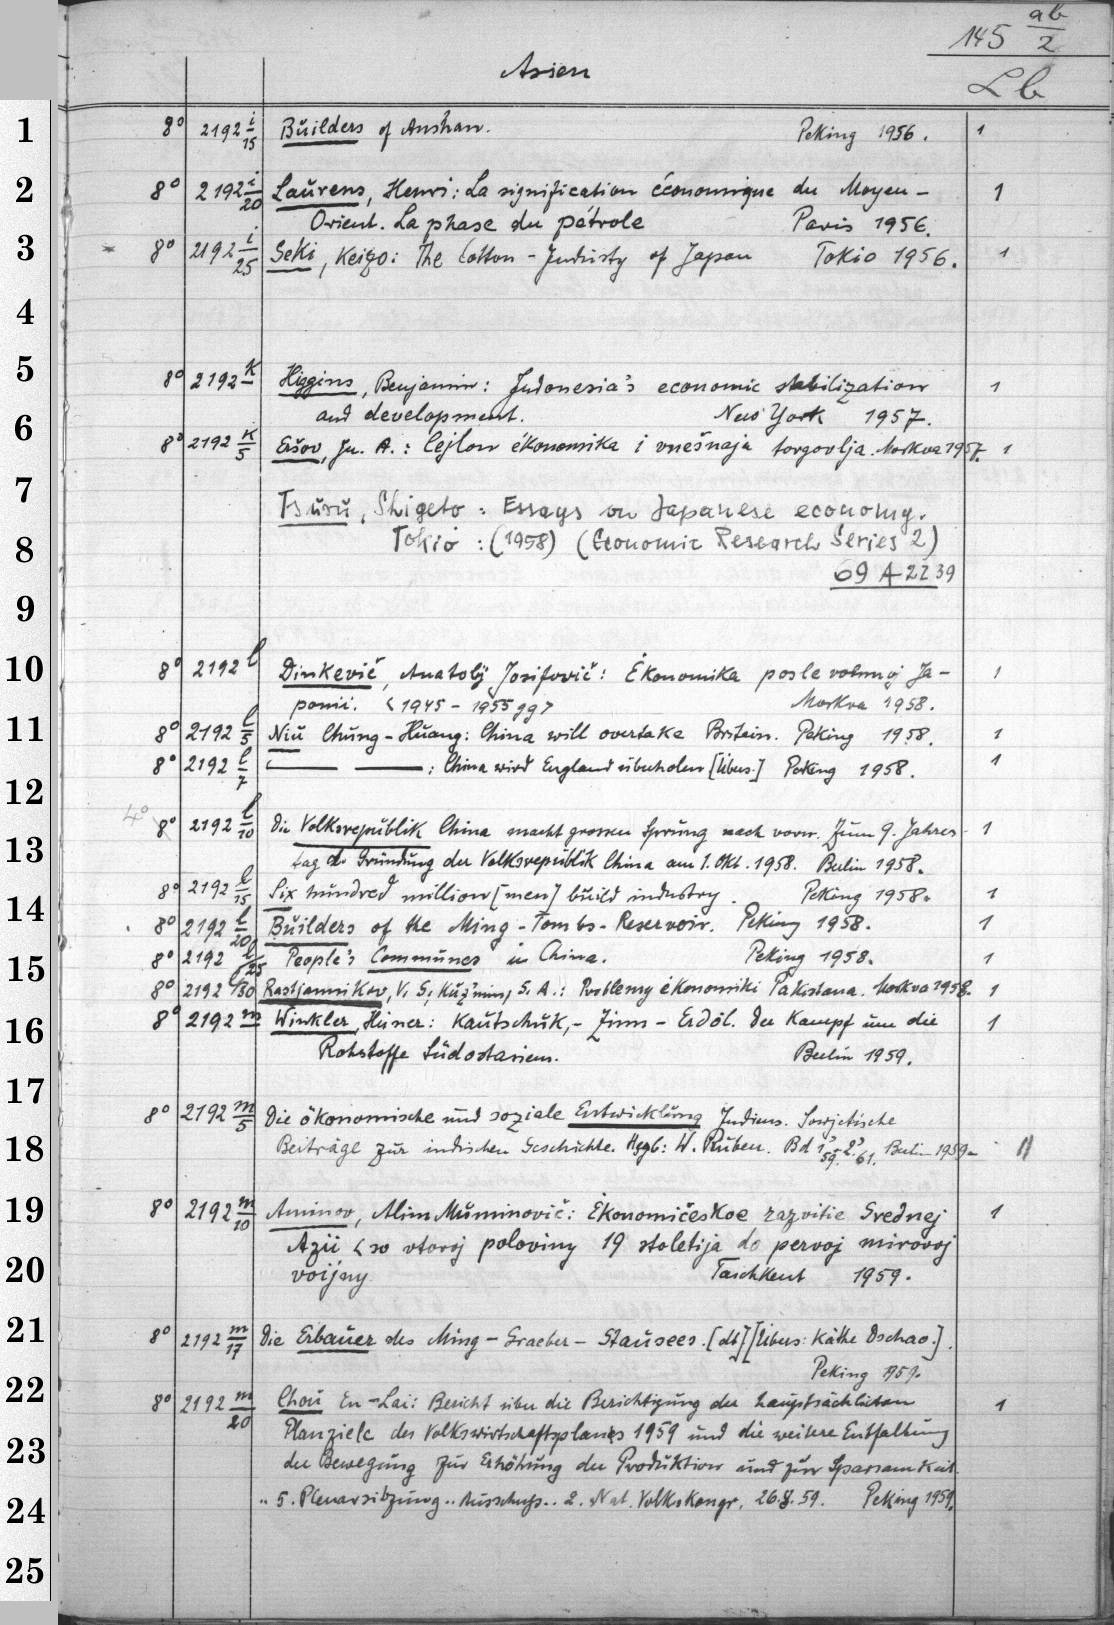 145 ab/2
Asien
Lb
1
8° 2192 i/15 Builders of Anshan. Peking 1956. 1
2
8° 2192 i/20 Laurens, Henri: La signification économique du Moyen-
Orient. La phase du pétrole Paris 1956. 1
3
8° 2192 i/25 Seki, Keizo: The Cotton-Industry of Japan Tokio 1956. 1
4
5
8° 2192 k Higgins, Benjamin: Indonesia's economic stabilization 1
and development. New York 1957.
6
8° 2192 k/5 Eršov, Ju. A.: Cejlon ėkonomika i vnešnaja torgovlja. Moskva 1957. 1
7
Tsuru, Shigeto: Essays on Japanese economy.
8
Tokio: (1958) (Economic Research Series 2)
69 A 2239
9
10
8° 2192 l Dinkevič, Anatolij Josifovič: Ėkonomika poslevoennoj Ja- 1
ponii. <1945-1955 gg> Moskva 1958.
11
8° 2192 l/5 Niu Chung-Huang: China will overtake Britain. Peking 1958. 1
8° 2192 l/7 — — : China wird England überholen [Übers.] Peking 1958. 1
12
4° 8° 2192 l/10 Die Volksrepublik China macht grossen Sprung nach vorn. Zum 9. Jahres- 1
13
tag der Gründung der Volksrepublik China am 1. Okt. 1958. Berlin 1958.
8° 2192 l/15 Six hundred million [men] build industry. Peking 1958. 1
14
8° 2192 l/20 Builders of the Ming-Tombs-Reservoir. Peking 1958. 1
15
8° 2192 l/25 People's Communes in China. Peking 1958. 1
8° 2192 l/30 Rastjannikov, V. S., Kuz'min, S. A.: Problemy ėkonomiki Pakistana. Moskva 1958. 1
16
8° 2192 m Winkler, Heiner: Kautschuk,- Zinn-Erdöl. Der Kampf um die 1
Rohstoffe Südostasiens. Berlin 1959.
17
8° 2192 m/5 Die ökonomische und soziale Entwicklung Indiens. Sowjetische
18
Beiträge zur indischen Geschichte. Hrgb: W. Ruben. Bd 1, 59. 2, 61. Berlin 1959- 11
19
8° 2192 m/10 Aminov, Alim Muminovič: Ėkonomičeskoe razvitie Srednej 1
Azii <so vtoroj poloviny 19 stoletija do pervoj mirovoj
20
voijny Taschkent 1959.
21
8° 2192 m/17 Die Erbauer des Ming-Graeber-Stausees. [dt] [Übers: Käthe Dschao.].
Peking 1959.
22
8° 2192 m/20 Chou En-Lai: Bericht über die Berichtigung der hauptsächlichen 1
Planziele des Volkswirtschaftsplanes 1959 und die weitere Entfaltung
23
der Bewegung zur Erhöhung der Produktion und zur Sparsamkeit.
24
.. 5. Plenarsitzung .. Ausschuss .. 2. Nat. Volkskongr, 26.8.59. Peking 1959.
25